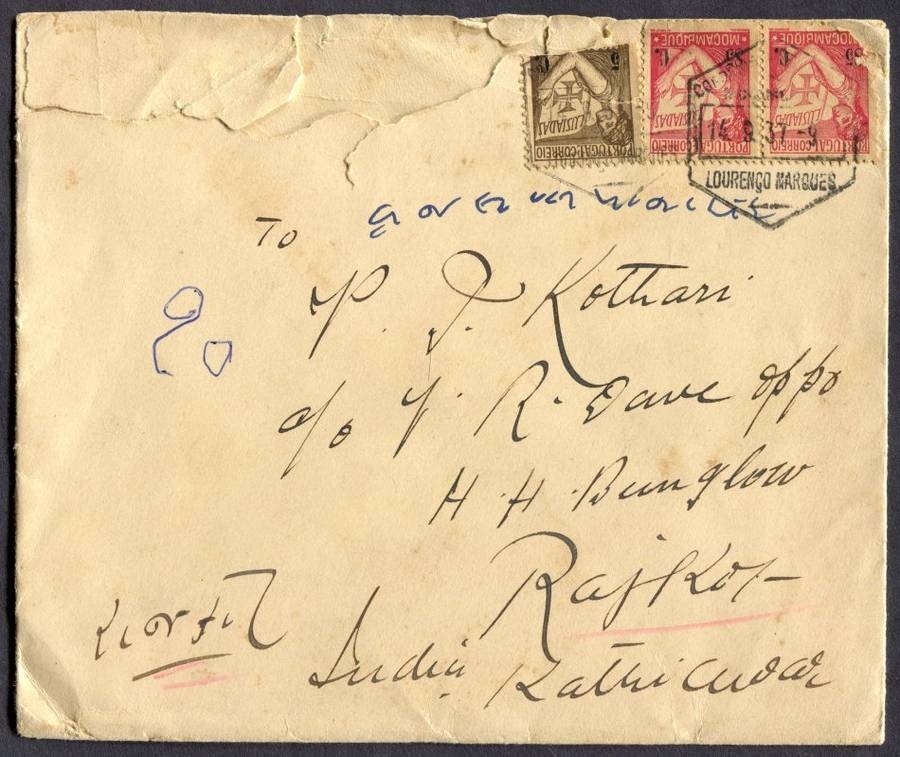 MOÇAMBIQUE MOÇAMBIQUE
5 C. 35 C. 35 C.
LUSIADAS LUSIADAS LUSIADAS
PORTUGAL·CORREIO PORTUGAL·CORREIO PORTUGAL·CORREIO
14 9 37 - 9
LOURENÇO MARQUES
To
P. J. Kothari
c/o V. R. Dave oppo
H. H. Bunglow
Rajkot
રાજકોટ
India Kathiawar